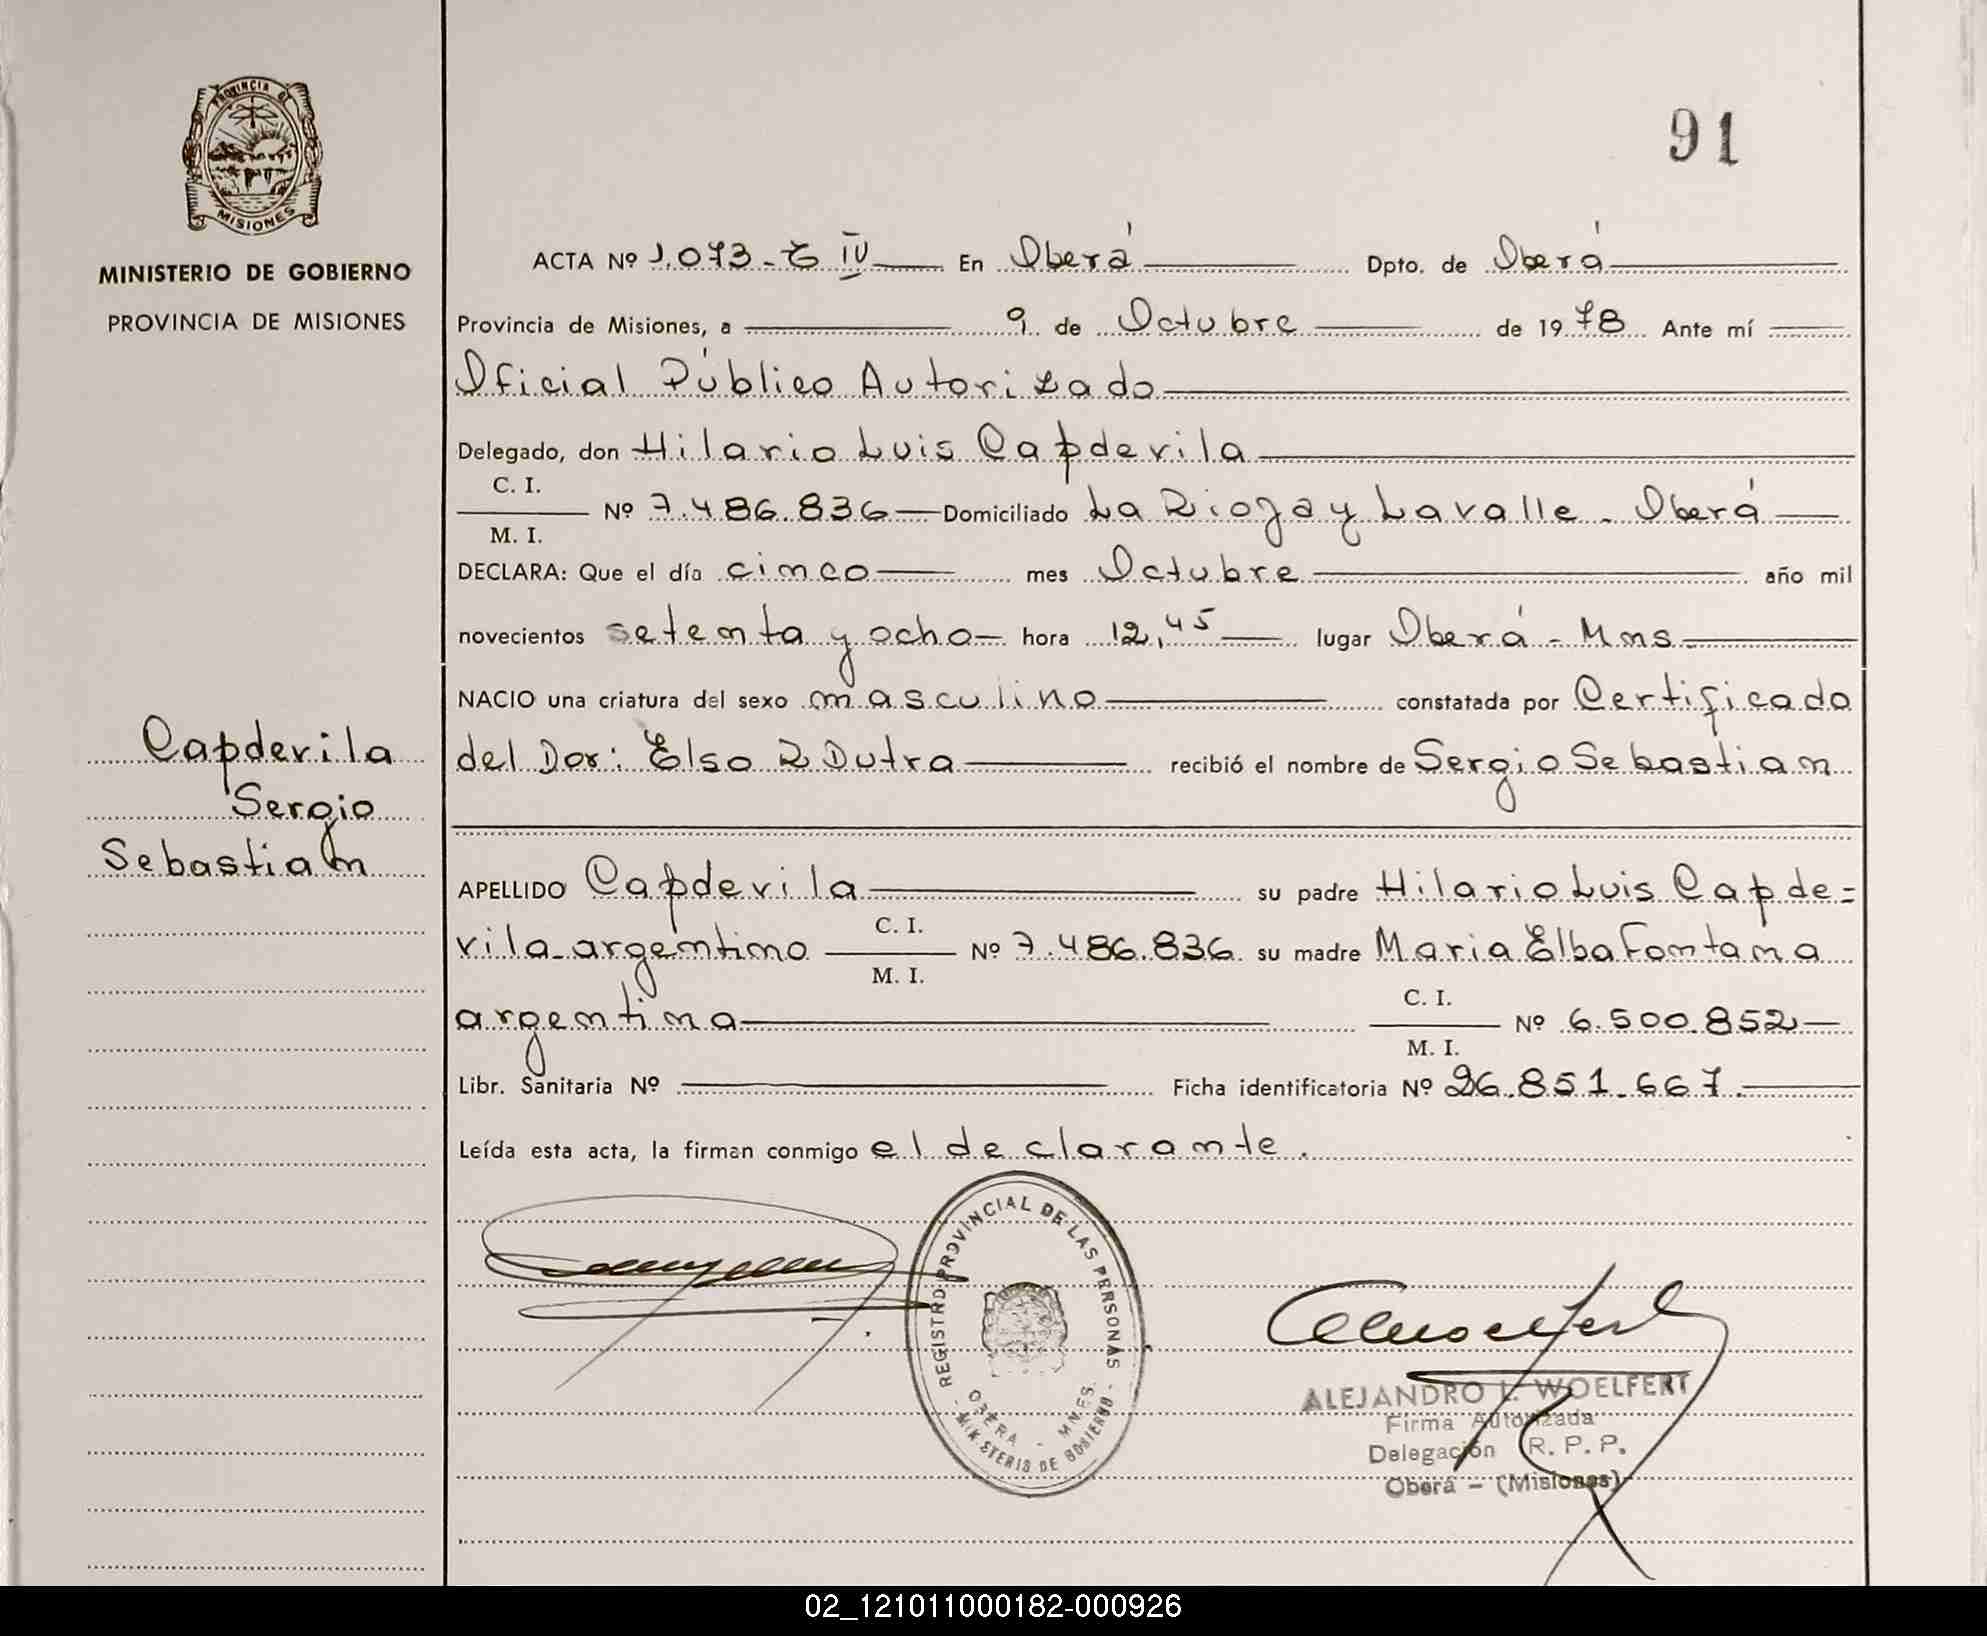 PROVINCIA DE
MISIONES
MINISTERIO DE GOBIERNO
PROVINCIA DE MISIONES
91
ACTA Nº 1.073-T IV En Oberá Dpto. de Oberá
Provincia de Misiones, a 9 de Octubre de 1978 Ante mí
Oficial Público Autorizado
Delegado, don Hilario Luis Capdevila
C. I.
Nº 7.486.836 Domiciliado La Rioja y Lavalle - Oberá
M. I.
DECLARA: Que el día cinco mes Octubre año mil
novecientos setenta y ocho hora 12,45 lugar Oberá - Mns.
NACIO una criatura del sexo masculino constatada por Certificado
del Dor: Elso R Dutra recibió el nombre de Sergio Sebastian
Capdevila
Sergio
Sebastian
APELLIDO Capdevila su padre Hilario Luis Capde=
C. I.
vila - argentino Nº 7.486.836 su madre Maria Elba Fontana
M. I.
C. I.
argentina Nº 6.500.852
M. I.
Libr. Sanitaria Nº Ficha identificatoria Nº 26.851.667.
Leída esta acta, la firman conmigo el declarante.
REGISTRO PROVINCIAL DE LAS PERSONAS
OBERA - MNES.
- MINISTERIO DE GOBIERNO -
ALEJANDRO L. WOELFERT
Firma Autorizada
Delegación R. P. P.
Oberá - (Misiones)
02_121011000182-000926